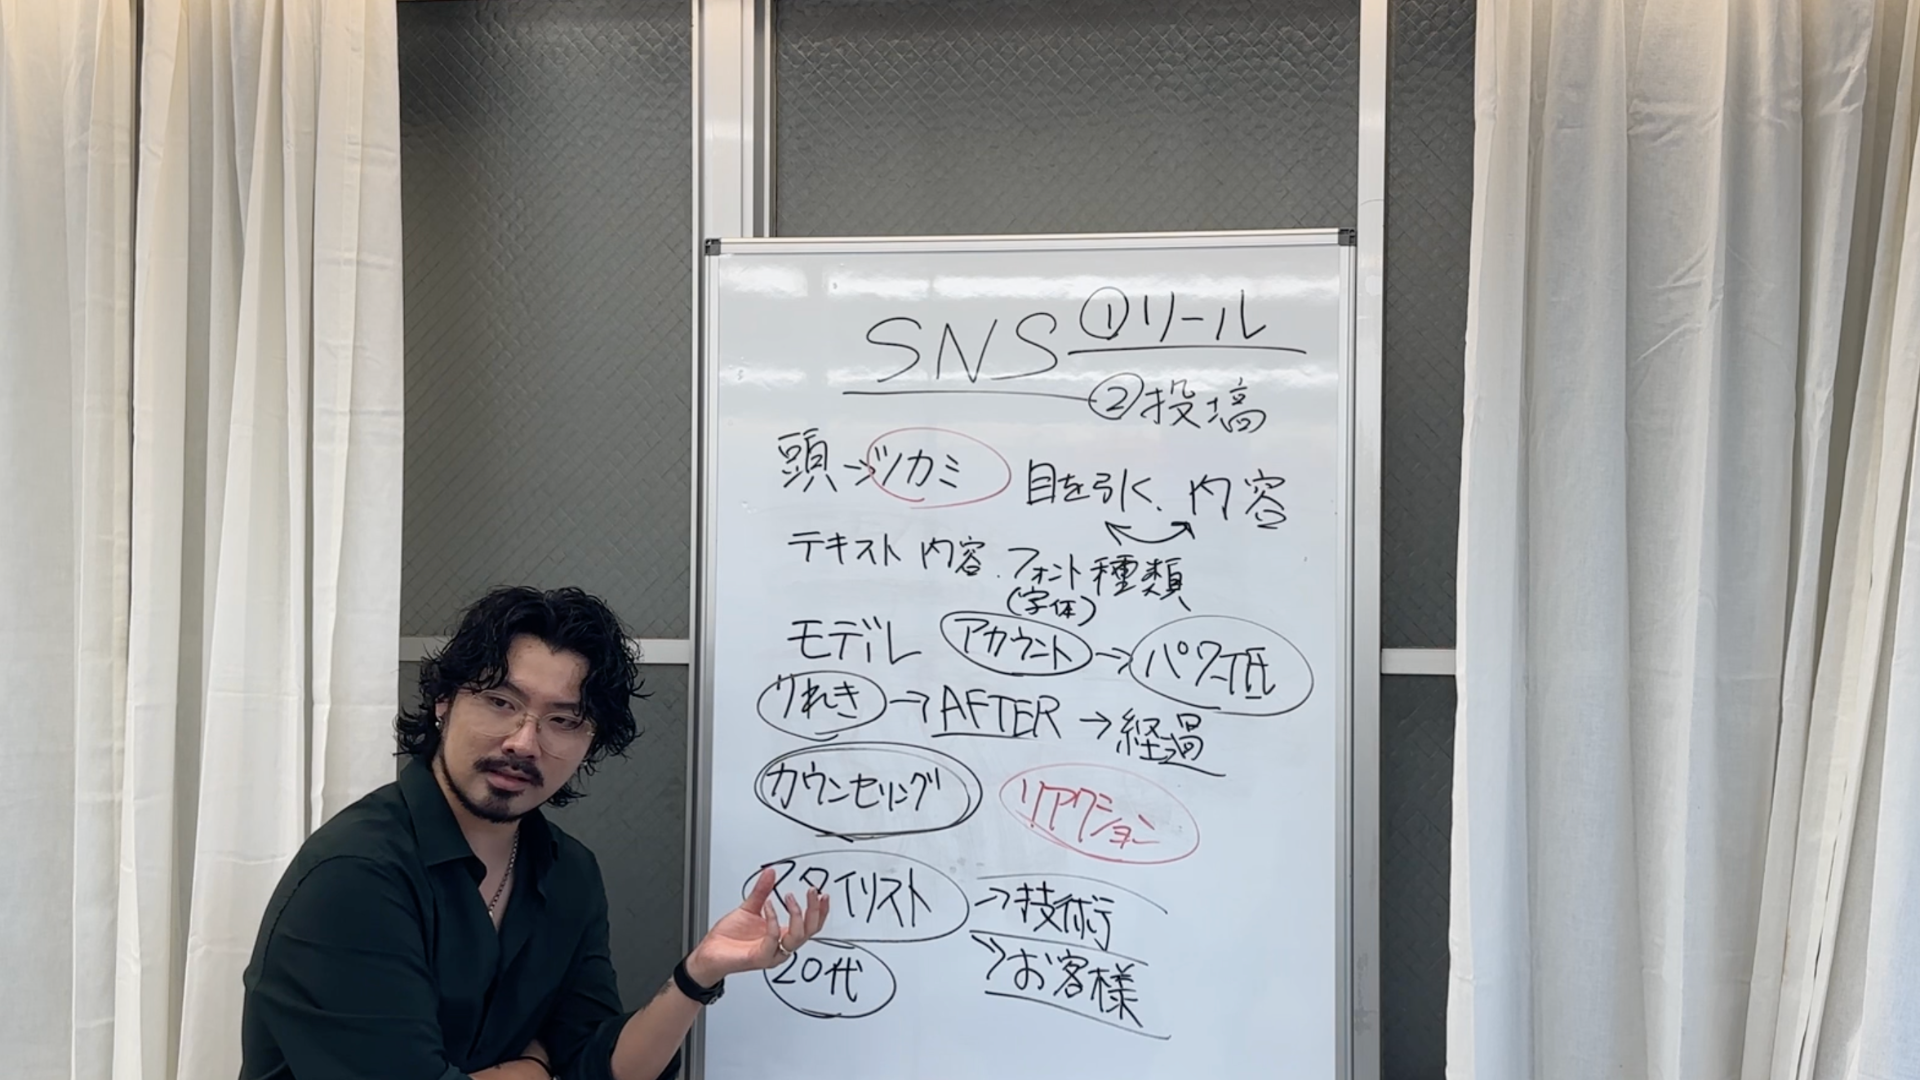 SNS ①リール
②投稿
頭→ツカミ 目を引く、内容
テキスト 内容、フォント種類
(字体)
モデル アカウント→パワー低
切れき→AFTER→経過
カウンセリング リアクション
スタイリスト→技術
→お客様
20代